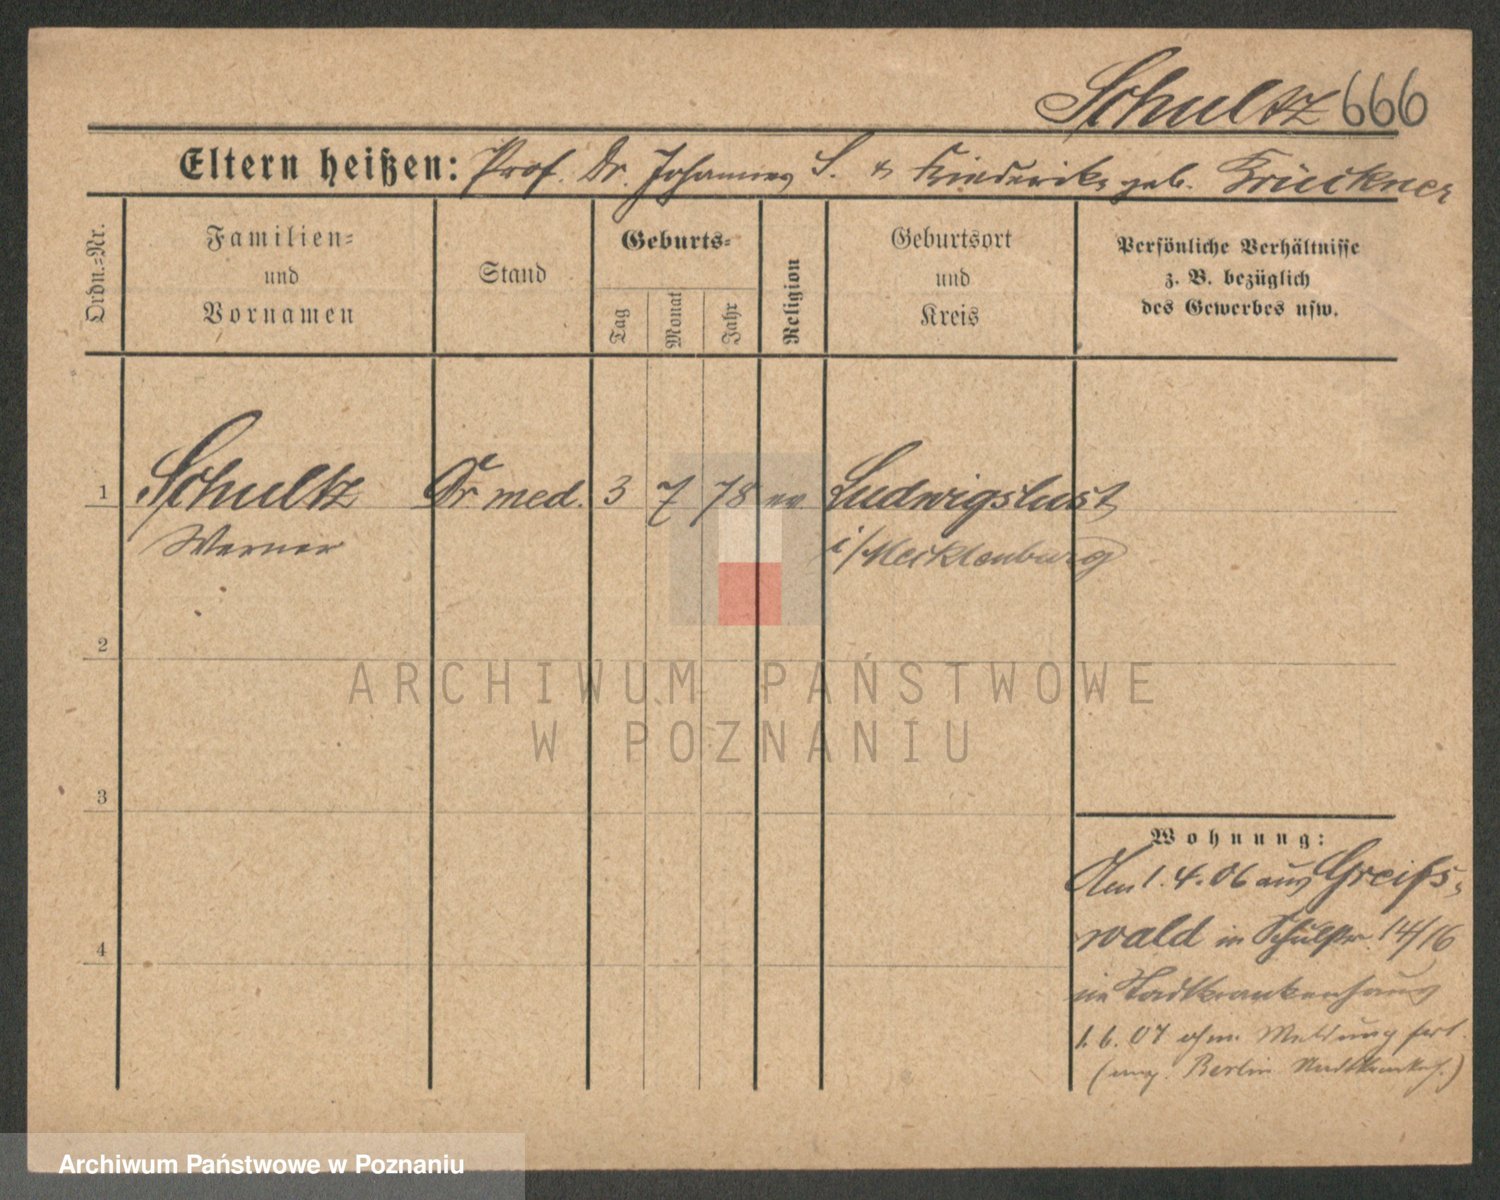 Schultz 666
Eltern heißen: Prof. Dr. Johannes S. & Friederike geb. Brückner
Ordn.-Nr.
Familien-
und
Vornamen
Stand
Geburts-
Tag
Monat
Jahr
Religion
Geburtsort
und
Kreis
Persönliche Verhältnisse
z. B. bezüglich
des Gewerbes usw.
1 Schultz Dr. med. 3 7 78 ev Ludwigslust
Werner i/Mecklenburg
2
ARCHIWUM PAŃSTWOWE
W POZNANIU
3
Wohnung:
Am 1.4.06 aus Greifs-
wald in Schulstr. 14/16
im Stadtkrankenhaus
4
1.6.07 ohne Meldung fort
(ang. Berlin Stadtkrankh.)
Archiwum Państwowe w Poznaniu